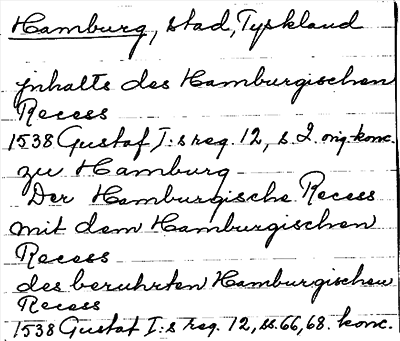 Hamburg, stad, Tyskland
Inhalts des Hamburgischen
Recess
1538 Gustaf I:s reg. 12, s. 2. orig. konc.
zu Hamburg
Der Hamburgische Recess
mit dem Hamburgischen
Recess
des beruhrten Hamburgischen
Recess
1538 Gustaf I:s reg. 12, ss. 66, 68. konc.